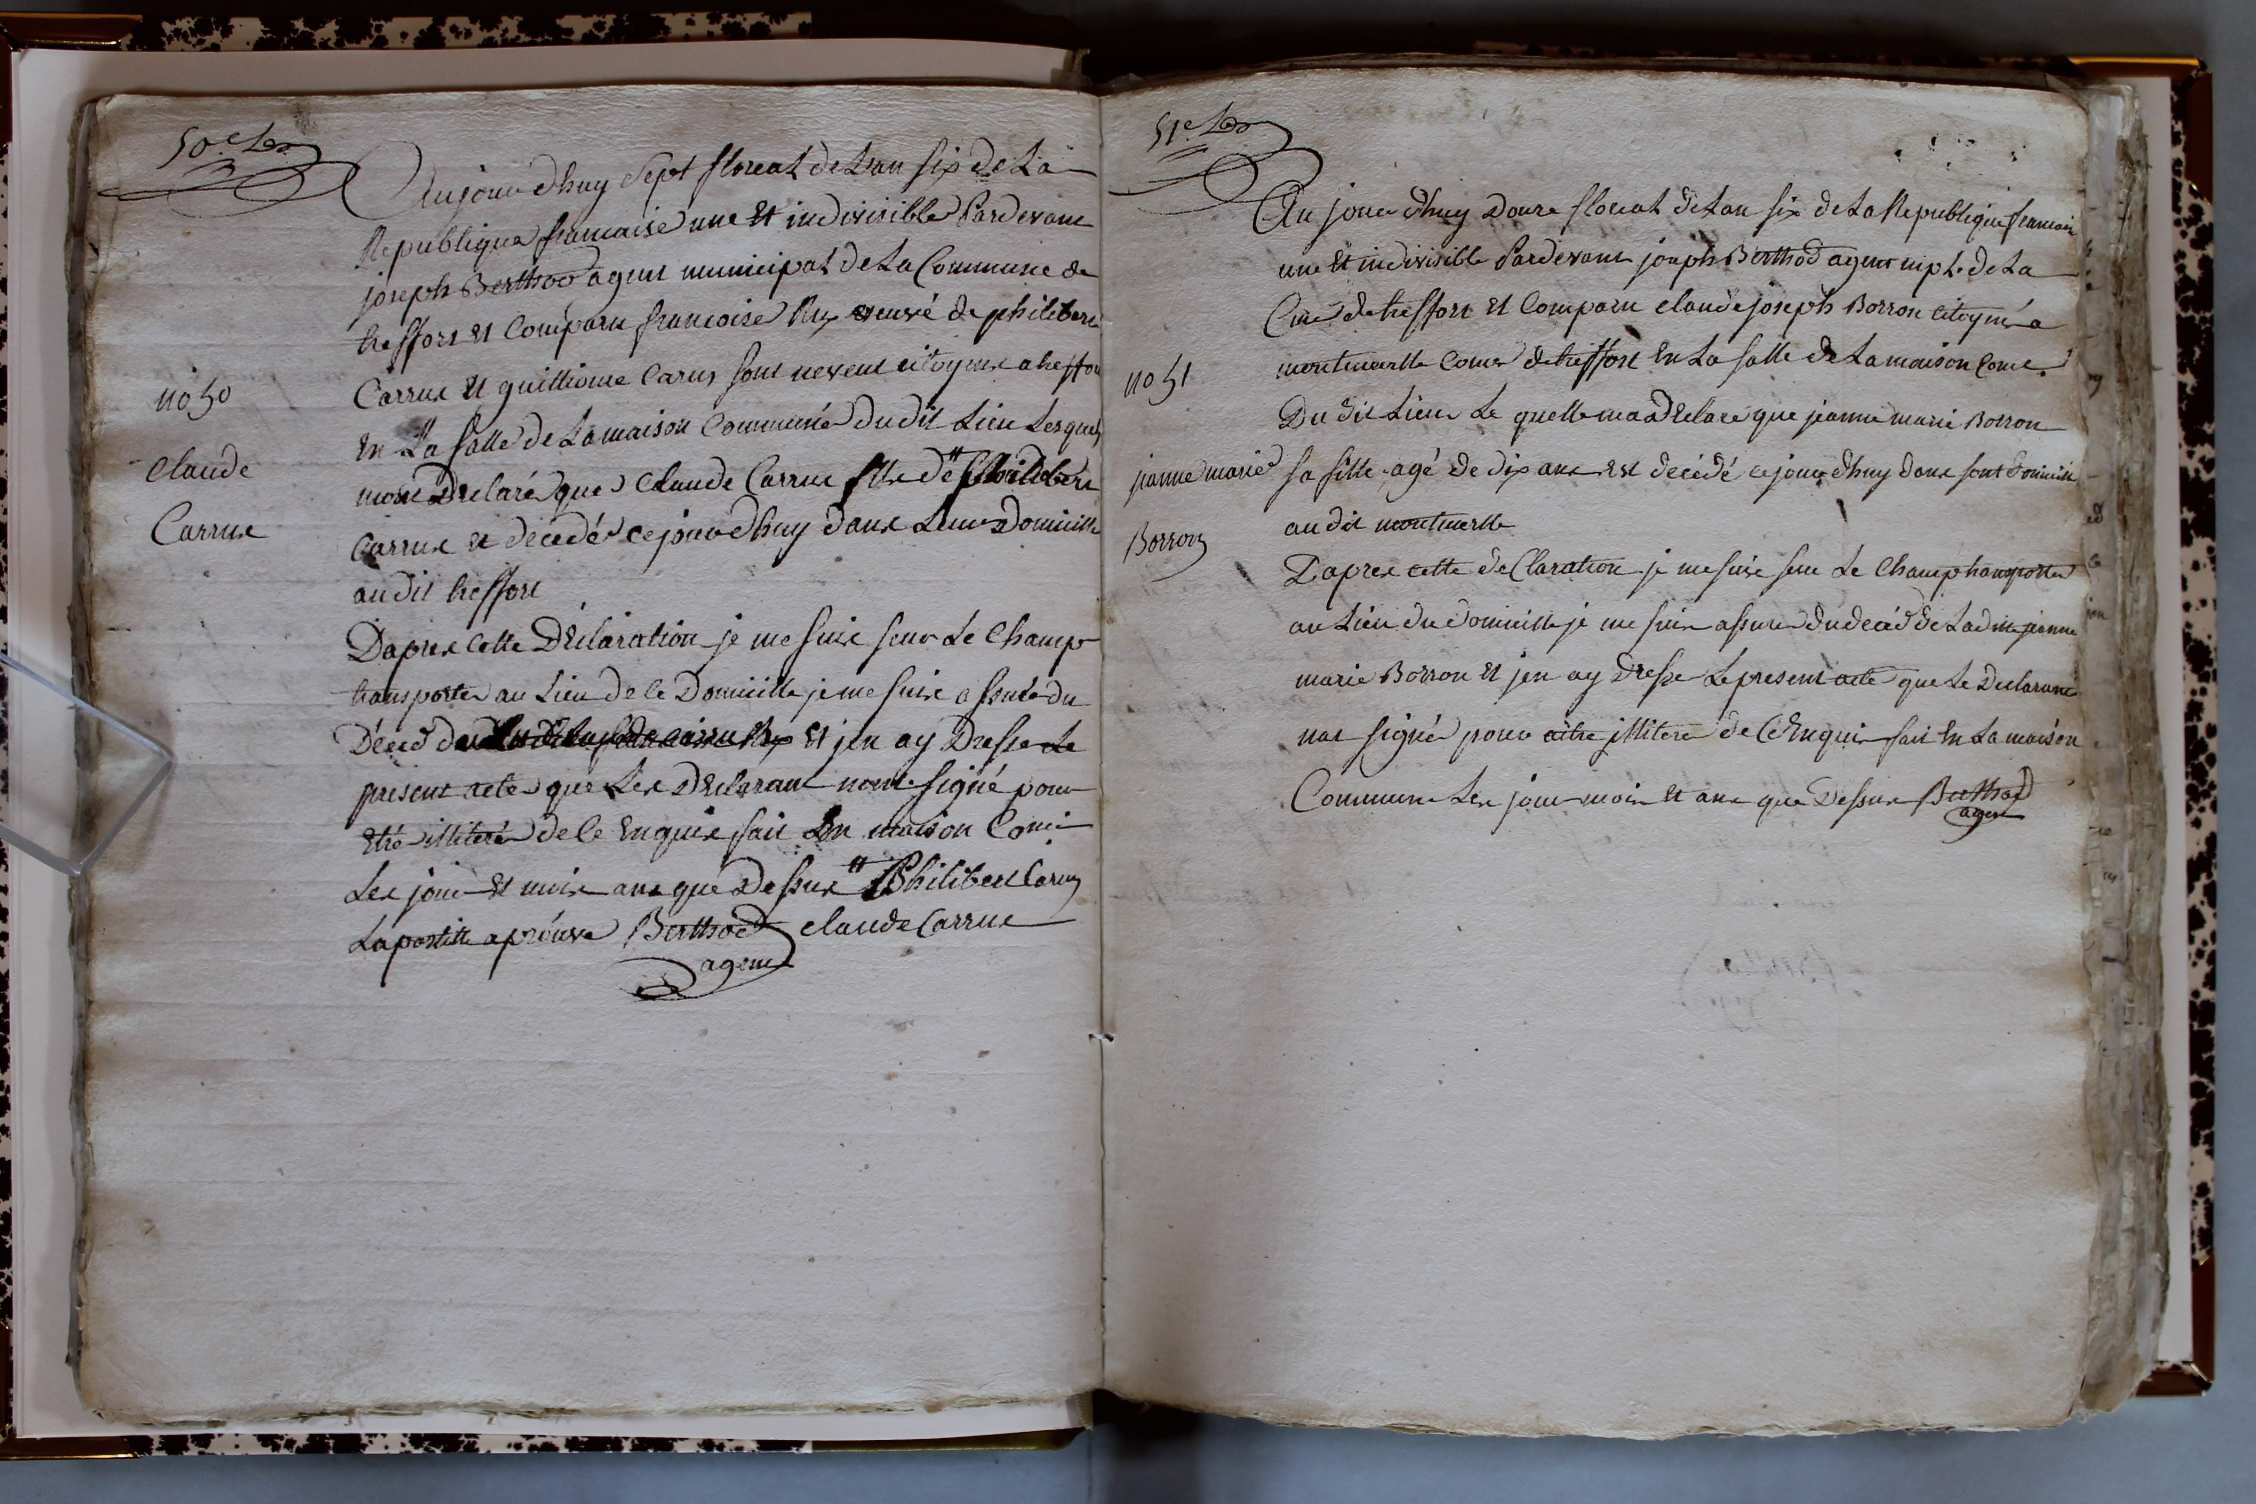 50e
Aujour dhuy sept floreal de Lan six de La
Republique francaise une Et indivisible Pardevant
joseph Berthod agent municipal de La Commune de
treffort Et Comparu francoise Ruy veuve de philibert
Carrus Et guilliome Carus sont neveu citoyens a treffort
no 50
En La salle de La maison Commune du dit Lieu Lesquels
Claude
mont Declaré que Claude Carrus fils de # Philibert
Carrus
Carrus et décédé ce jour dhuy dans Leur Domicille
au dit treffort
Dapres Cette Déclaration je me suis sur Le Champ
transporter au Lieu de le Domicille je me suis assuré du
Décéd Et jen ay Dresse Le
present acte que Les Declarant nont signé pour
Etre illiteré de ce Enquis fait En maison Come
Les jour Et mois ans que Dessus # Philibert Carus
La postille aprouve Berthod Claude Carrus
agent
51e
Au jour dhuy Douze floreal de Lan six de La Republique francaise
une Et indivisible Pardevant joseph Berthod agent mpl. de La
Cme de treffort Et Comparu claude joseph Borron citoyen a
montmerle Come de treffort En La salle de La maison Come.
no 51
Du dit Lieu Le quelle ma Declare que jeanne marie Borron
jeanne marie
sa fille agé de dix ans Est decédé ce jour dhuy dans sont Domicille
Borron
au dit montmerle
Dapres cette deClaration je me suis sur Le Champ transporter
au Lieu du Domicille je me suis assurer du decéd de Ladite jeanne
marie Borron Et jen ay Dresse Le present acte que Le Declarant
nas signé pour aitre illiteré de Ce Enquis fait En La maison
Commune Les jour mois Et ans que Dessus Berthod
agent